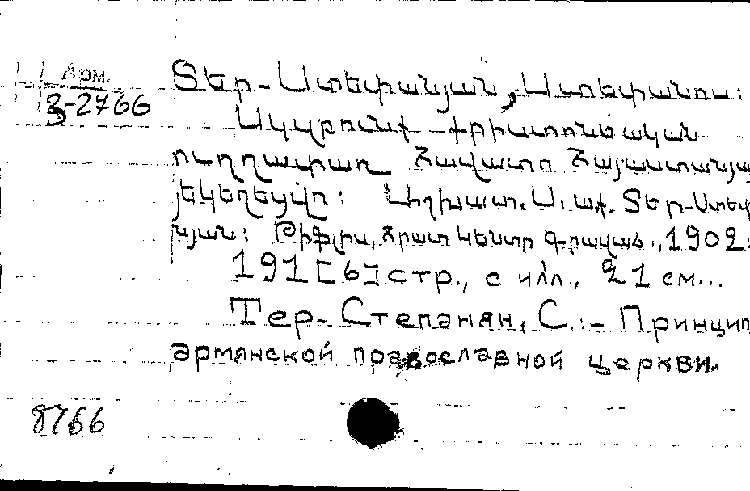 Арм.
Տեր-Ստեփանյան, Ստեփանոս:
3-2766
Սկզբունք քրիստոնեական
ուղղափառ հավատո Հայաստանյա
յեկեղեցվո: Աշխատ. Ս. ավ. Տեր-Ստեփ
նյան: Թիֆլիս, Հրատ կենտր գրավաճ., 1902:
191 [6] стр., с илл., 21 см...
Тер-Степанян, С.:- Принцип
армянской православной церкви.
8766